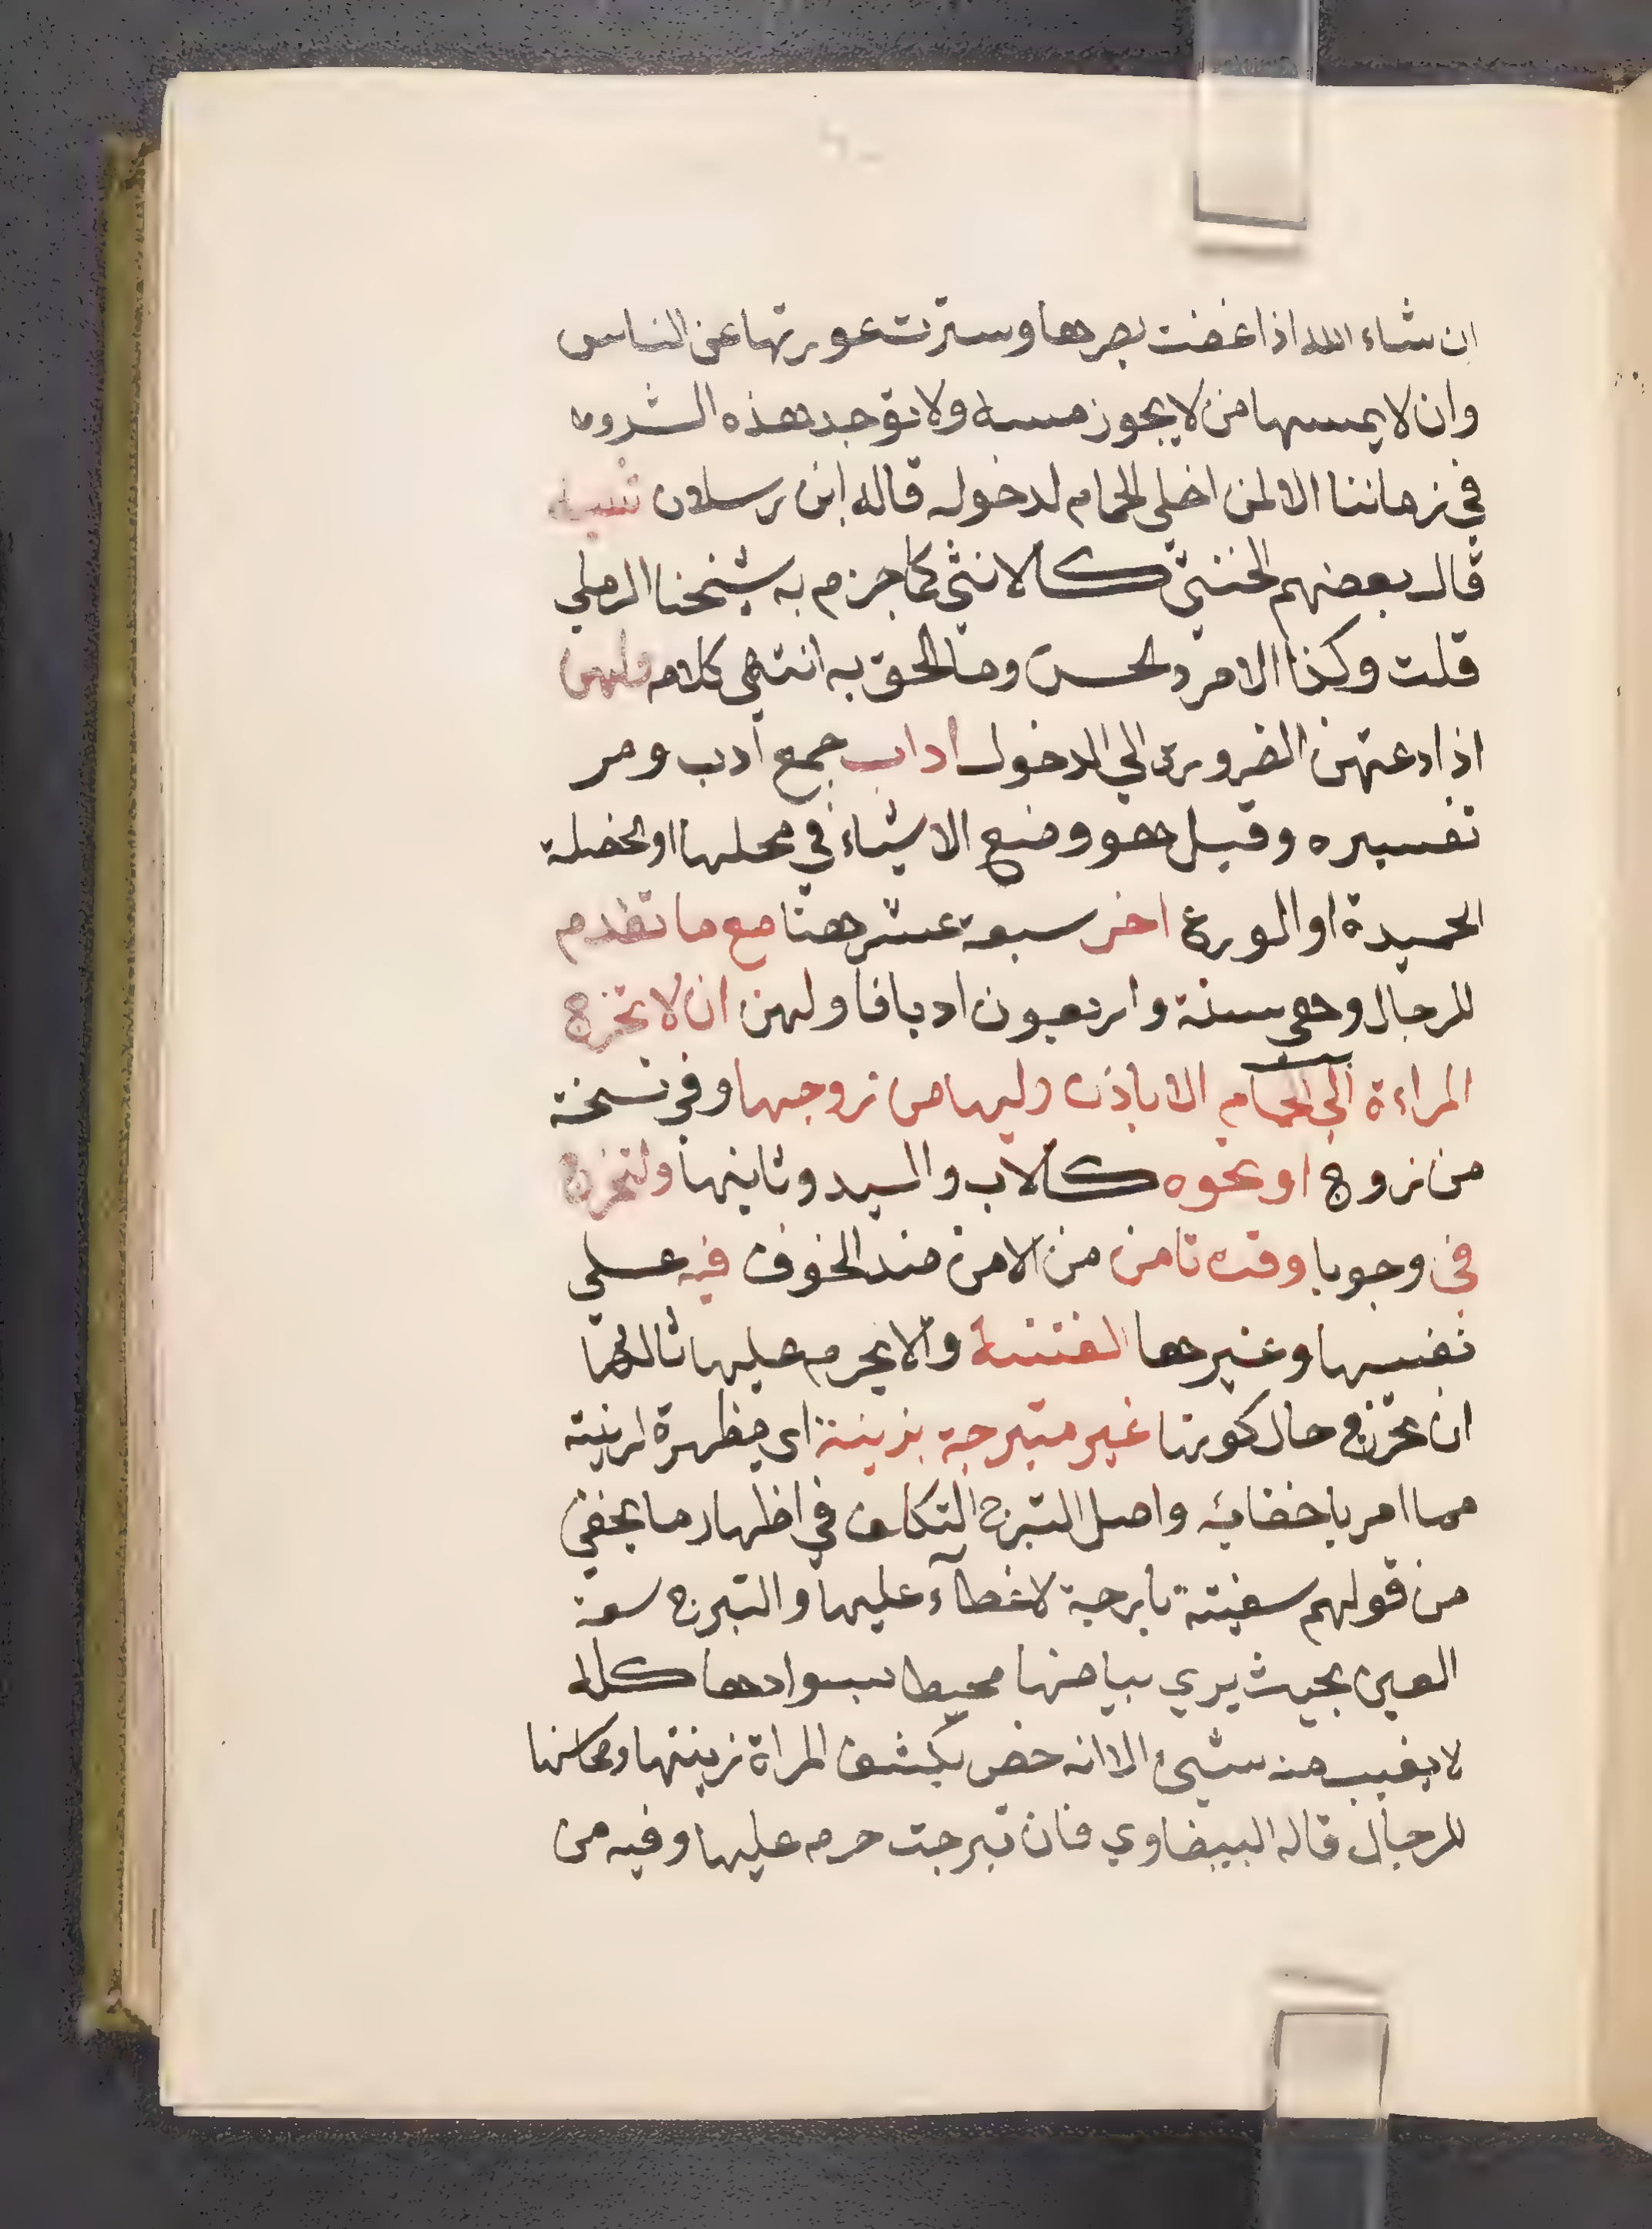 ان شاء الله اذا غضت بصرها وسترت عورتها عن الناس
وان لا يمسها من لا يجوز مسه ولا توجد هذه الشروط
في زماننا الا لمن اخلي الحمام لدخوله قاله ابن رسلان تنبيه
قال بعضهم الخنثي كالانثي كما جزم به شيخنا الرملي
قلت وكذا الامرد الحسن وما الحق به انتهي كلامه ولهن
اذا دعتهن الضرورة الي الدخول اداب جمع ادب ومر
تفسيره وقيل هو وضع الاشياء في محلها او الخصلة
الحميدة او الورع اخر سبعة عشر هنا مع ما تقدم
للرجال وهي ستة واربعون ادبا فاولهن ان لا تخرج
المراءة الي الحمام الا باذن وليها من زوجها وفي نسخة
من زوج او نحوه كالاب والسيد وثانيها ولتخرج
في وجوبا وقت تامن من الامن ضد الخوف فيه علي
نفسها وغيرها الفتنة والا يحرم عليها ثالثها
ان تخرج حال كونها غير متبرجة بزينة اي مظهرة لزينة
مما امر باخفائه واصل التبرج التكلف في اظهار ما يخفي
من قولهم سفينة بارجة لا غطآء عليها والتبرج سعة
العين بحيث يري بياضها محيطا بسوادها كله
لا يغيب منه شيئ الا انه خص بكشف المراة زينتها ومحاسنها
للرجال قاله البيضاوي فان تبرجت حرم عليها وفيه من